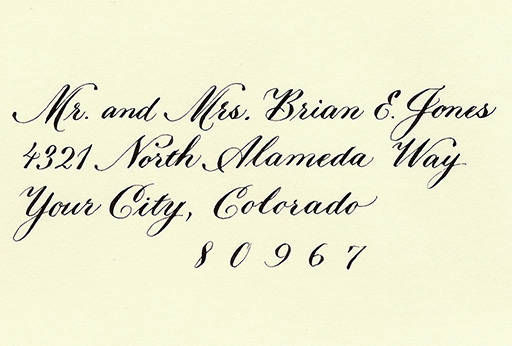 Mr. and Mrs. Brian E. Jones
4321 North Alameda Way
Your City, Colorado
80967